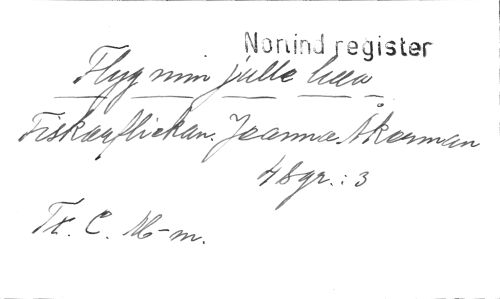 Nomind register
Flyg min julle lilla
Fiskarflickan. Joanna Åkerman
48gr.: 3
Tr. C. M-m.